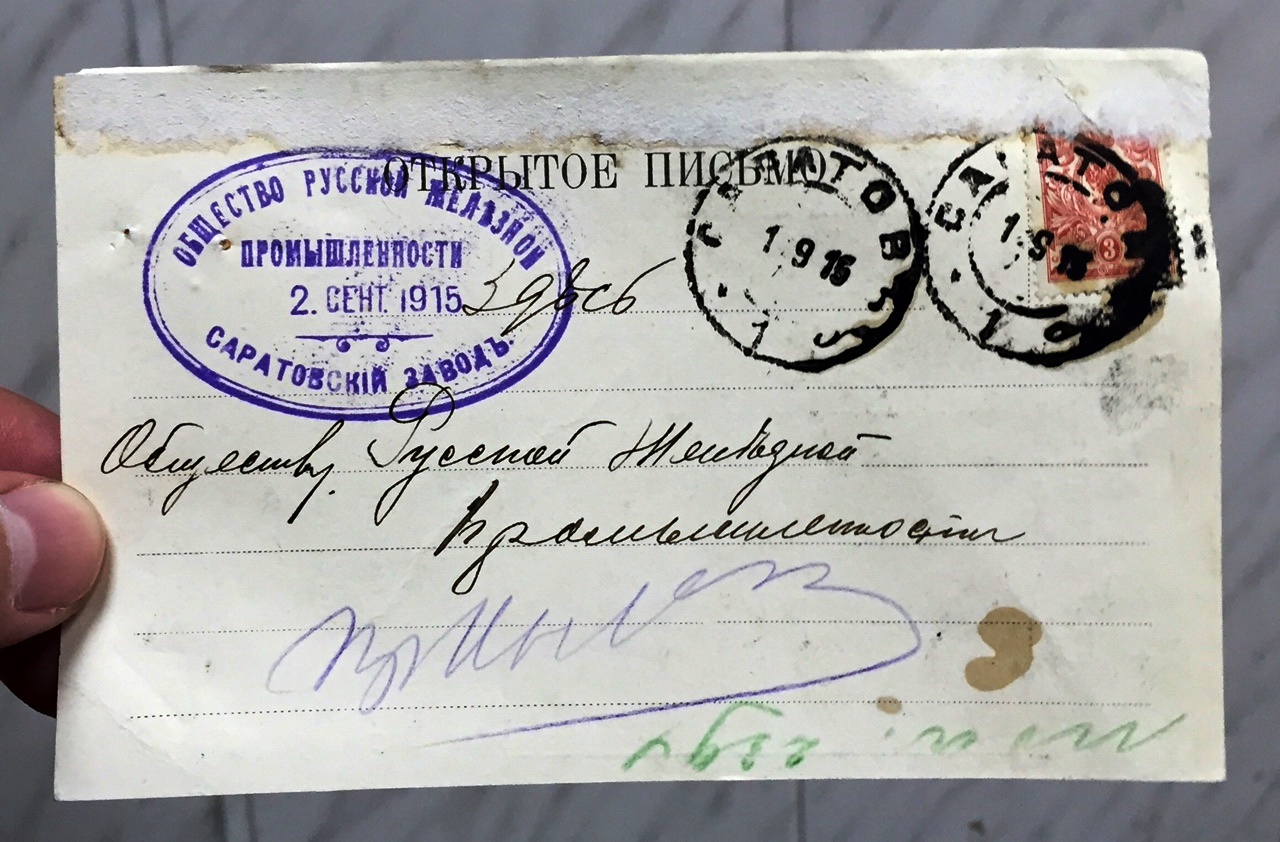 ОТКРЫТОЕ ПИСЬМО
ОБЩЕСТВО РУССКОЙ ЖЕЛѢЗНОЙ
ПРОМЫШЛЕННОСТИ
2. СЕНТ. 1915
САРАТОВСКІЙ ЗАВОДЪ.
САРАТОВ
1 9 15
1
САРАТОВ
1 9 15
1
3
Здѣсь
Обществу Русской Желѣзной
Промышленности